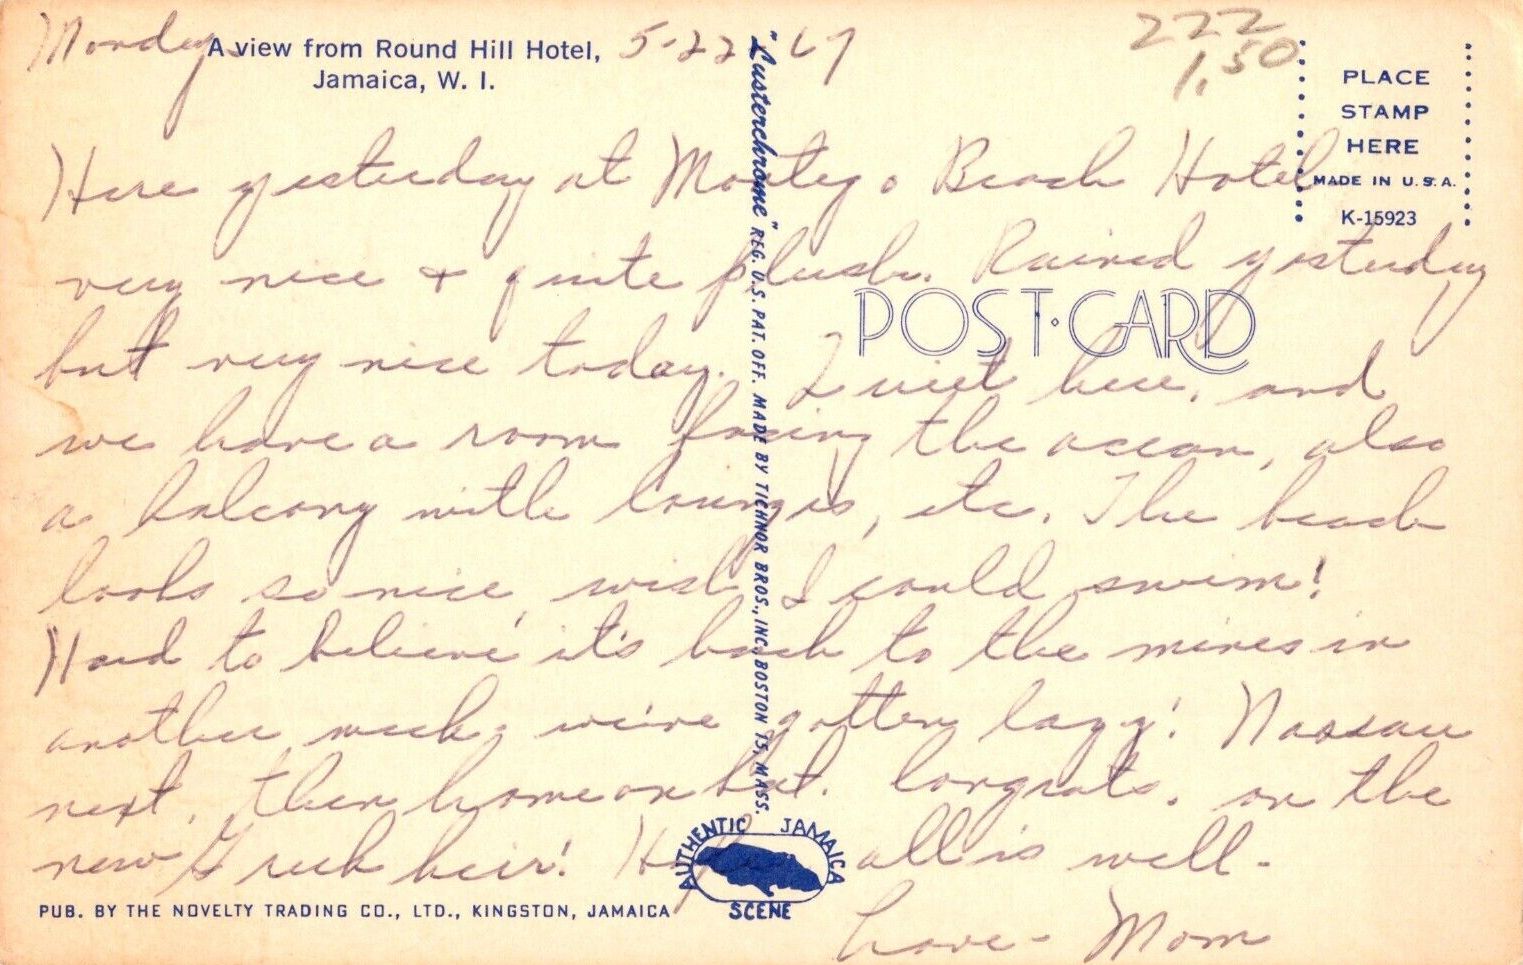 Monday 5-22-67
222
1.50
A view from Round Hill Hotel,
Jamaica, W. I.
PLACE
STAMP
HERE
MADE IN U.S.A.
K-15923
"Lusterchrome" REG. U.S. PAT. OFF. MADE BY TICHNOR BROS., INC. BOSTON 15, MASS.
POST·CARD
Here yesterday at Montego Beach Hotel
very nice & quite plush. Rained yesterday
but very nice today. Quiet here, and
we have a room facing the ocean, also
a balcony with lounges, etc. The beach
looks so nice, wish I could swim!
Hard to believe it's back to the mines in
another week, we've gotten lazy! Nassau
next, then home on Sat. Congrats. on the
new Greek heir! Hope all is well-
Love- Mom
AUTHENTIC JAMAICA
SCENE
PUB. BY THE NOVELTY TRADING CO., LTD., KINGSTON, JAMAICA